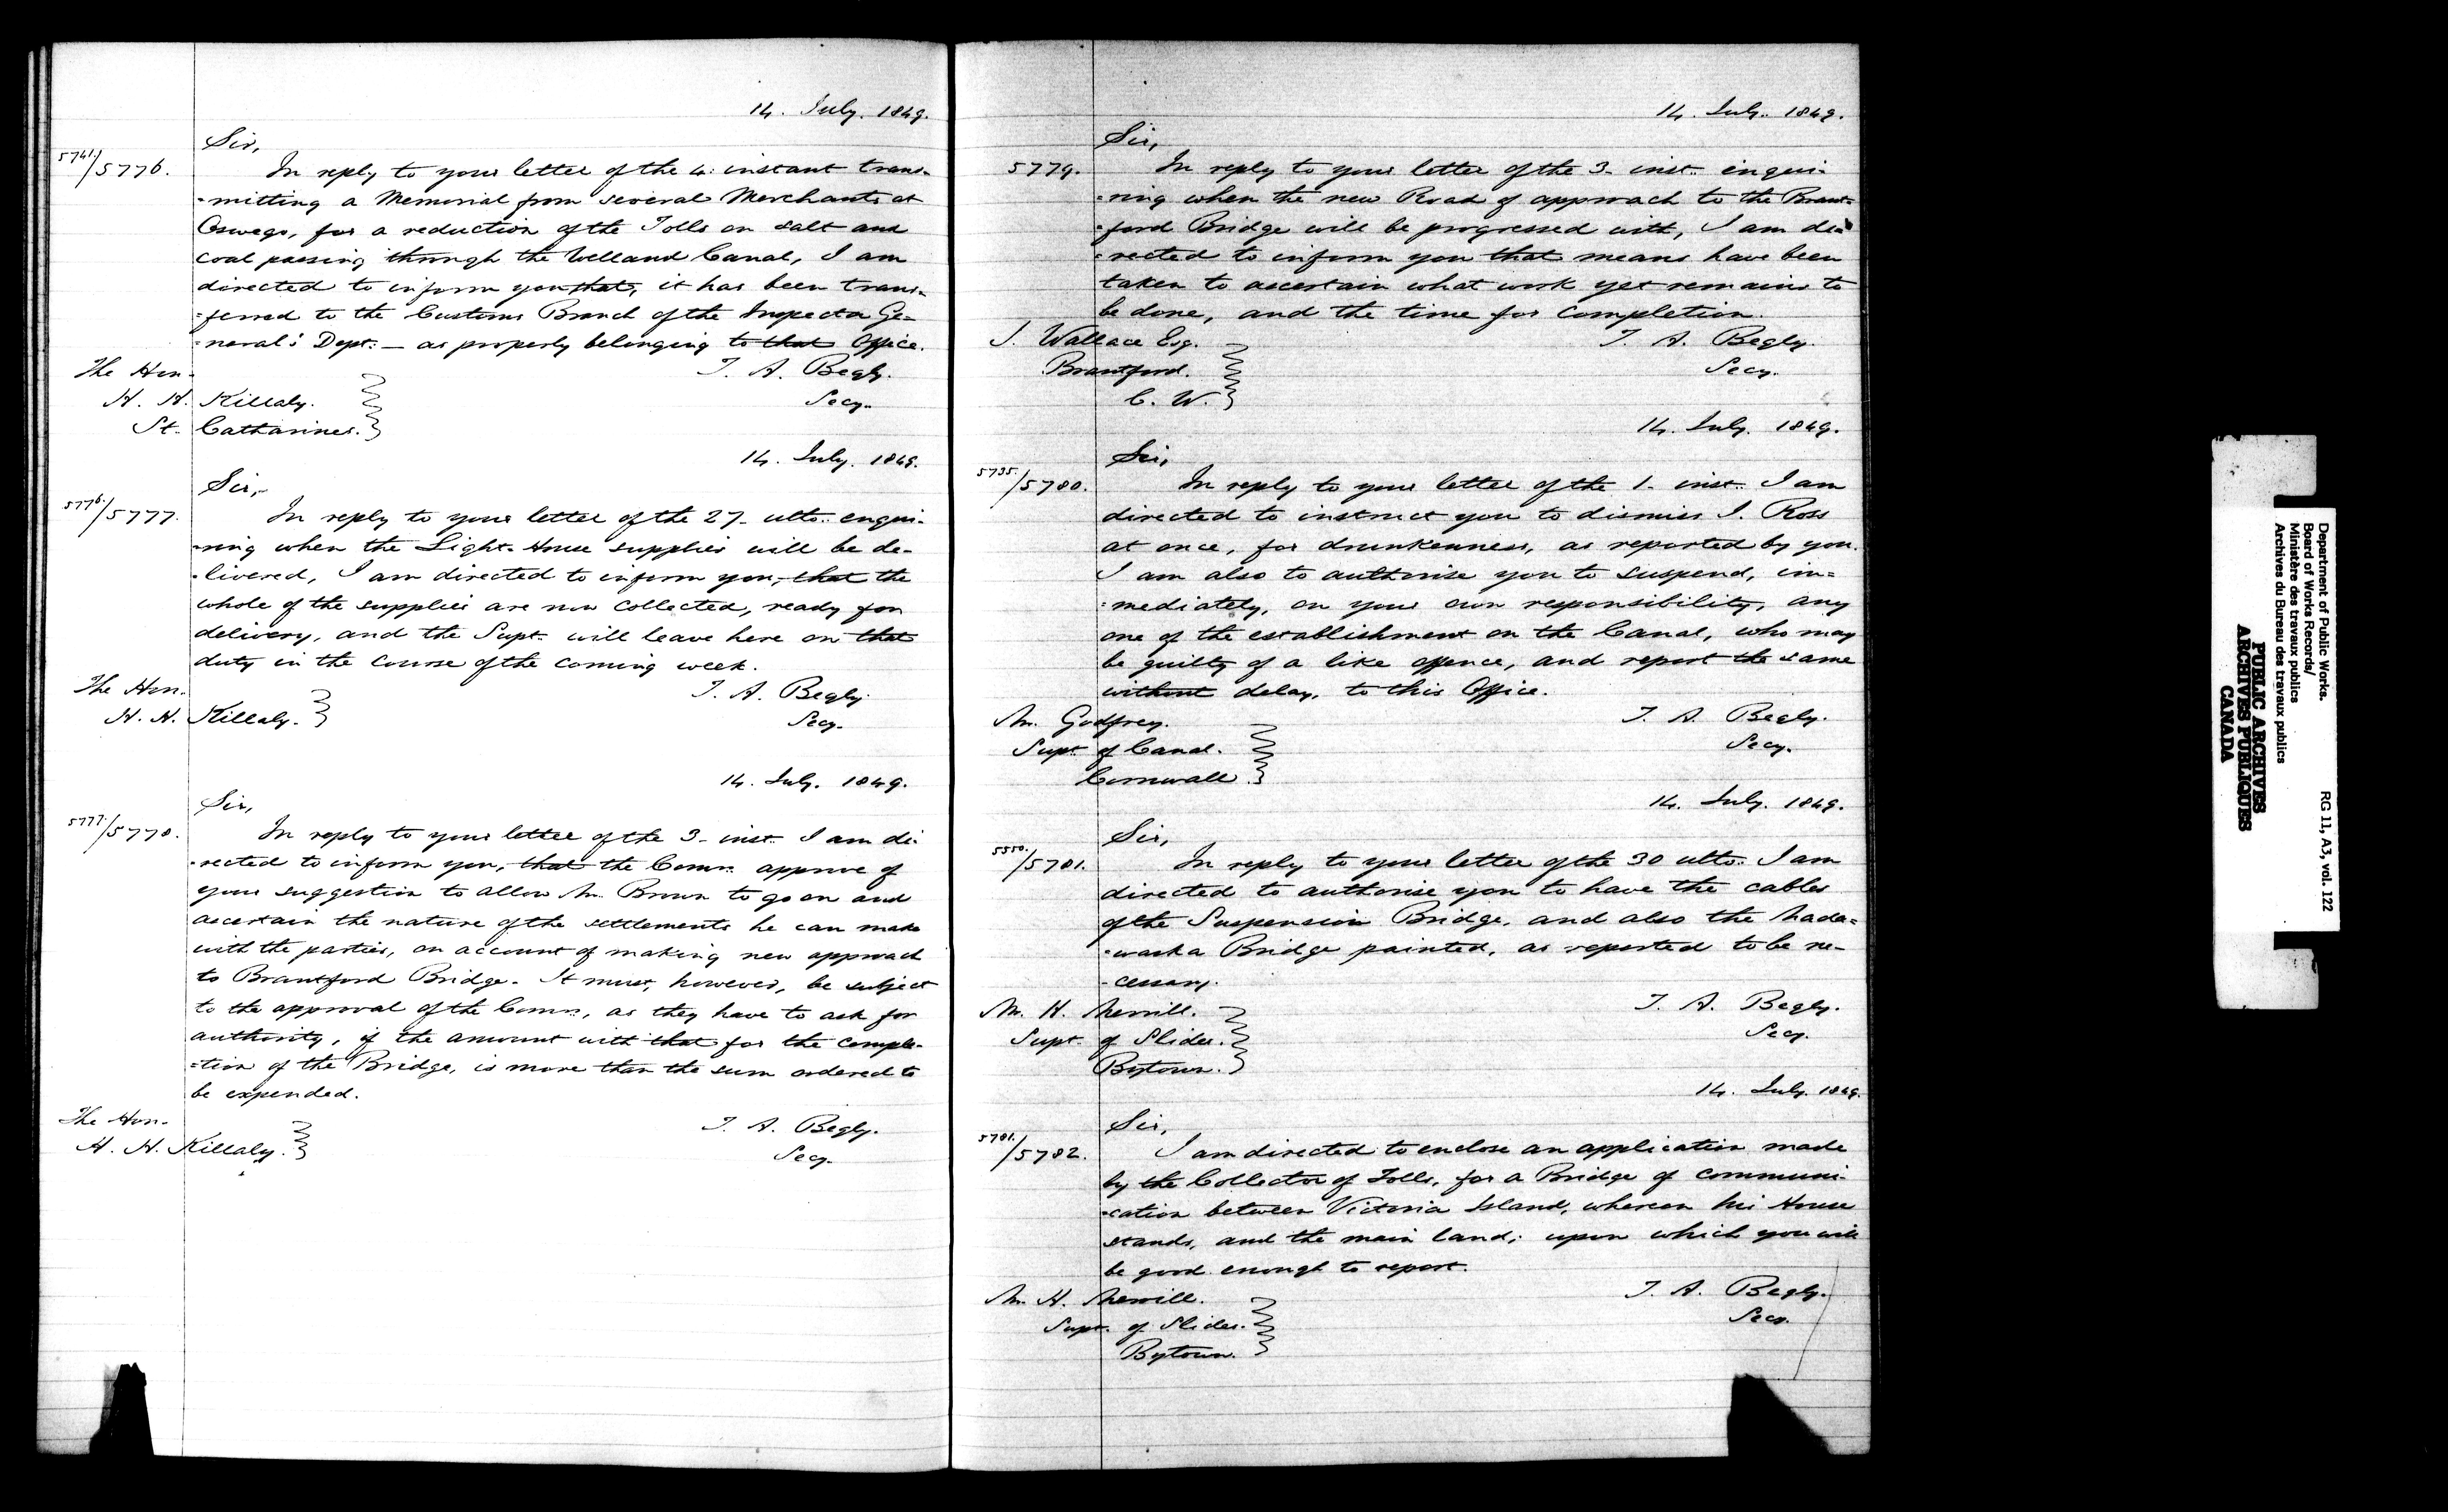 14. July. 1849.
Sir,
5741./5776.
In reply to your letter of the 4. instant trans-
-mitting a Memorial from several Merchants at
Oswego, for a reduction of the Tolls on salt and
coal passing through the Welland Canal, I am
directed to inform you that, it has been trans-
=ferred to the Customs Branch of the Inspector Ge-
=neral's Dept. — as properly belonging to that Office.
T. A. Begly.
Secy.
The Hon.
H. H. Killaly.
St. Catharines.
14. July. 1849.
Sir,
5776./5777.
In reply to your letter of the 27- ulto. enqui-
-ring when the Light-House supplies will be de-
-livered, I am directed to inform you, that the
whole of the supplies are now collected, ready for
delivery, and the Supt. will leave here on that
duty in the course of the coming week.
T. A. Begly.
Secy.
The Hon.
H. H. Killaly.
14. July. 1849.
Sir,
5777./5778.
In reply to your letter of the 3- inst. I am di-
-rected to inform you, that the Comrs. approve of
your suggestion to allow Mr. Brown to go on and
ascertain the nature of the settlements he can make
with the parties, on account of making new approach
to Brantford Bridge. It must, however, be subject
to the approval of the Comrs, as they have to ask for
authority, if the amount with that for the comple-
=tion of the Bridge, is more than the sum ordered to
be expended.
T. A. Begly.
Secy.
The Hon.
H. H. Killaly.
14. July. 1849.
Sir,
5779.
In reply to your letter of the 3- inst. enqui-
-ring when the new Road of approach to the Brant-
-ford Bridge will be progressed with, I am di-
-rected to inform you that means have been
taken to ascertain what work yet remains to
be done, and the time for completion.
T. A. Begly.
Secy.
J. Wallace Esq.
Brantford.
C. W.
14. July. 1849.
Sir,
5735./5780.
In reply to your letter of the 1- inst. I am
directed to instruct you to dismiss J. Ross
at once, for drunkenness, as reported by you.
I am also to authorise you to suspend, im=
=mediately, on your own responsibility, any
one of the establishment on the Canal, who may
be guilty of a like offence, and report the same
without delay, to this Office.
T. A. Begly.
Secy.
Mr. Godfrey.
Supt. of Canal.
Cornwall.
14. July. 1849.
Sir,
5550./5781.
In reply to your letter of the 30 ulto. I am
directed to authorise you to have the cables
of the Suspension Bridge, and also the Mada=
-waska Bridge painted, as reported to be ne-
-cessary.
T. A. Begly.
Secy.
Mr. H. Merrill.
Supt. of Slides.
Bytown.
14. July. 1849.
Sir,
5781./5782.
I am directed to enclose an application made
by the Collector of Tolls, for a Bridge of communi-
-cation between Victoria Island, whereon his House
stands, and the main land; upon which you will
be good enough to report.
T. A. Begly.
Secy.
Mr. H. Merrill.
Supt. of Slides.
Bytown.
Department of Public Works.
Board of Works Records/
Ministère des travaux publics
Archives du Bureau des travaux publics
RG 11, A3, vol. 122
PUBLIC ARCHIVES
ARCHIVES PUBLIQUES
CANADA